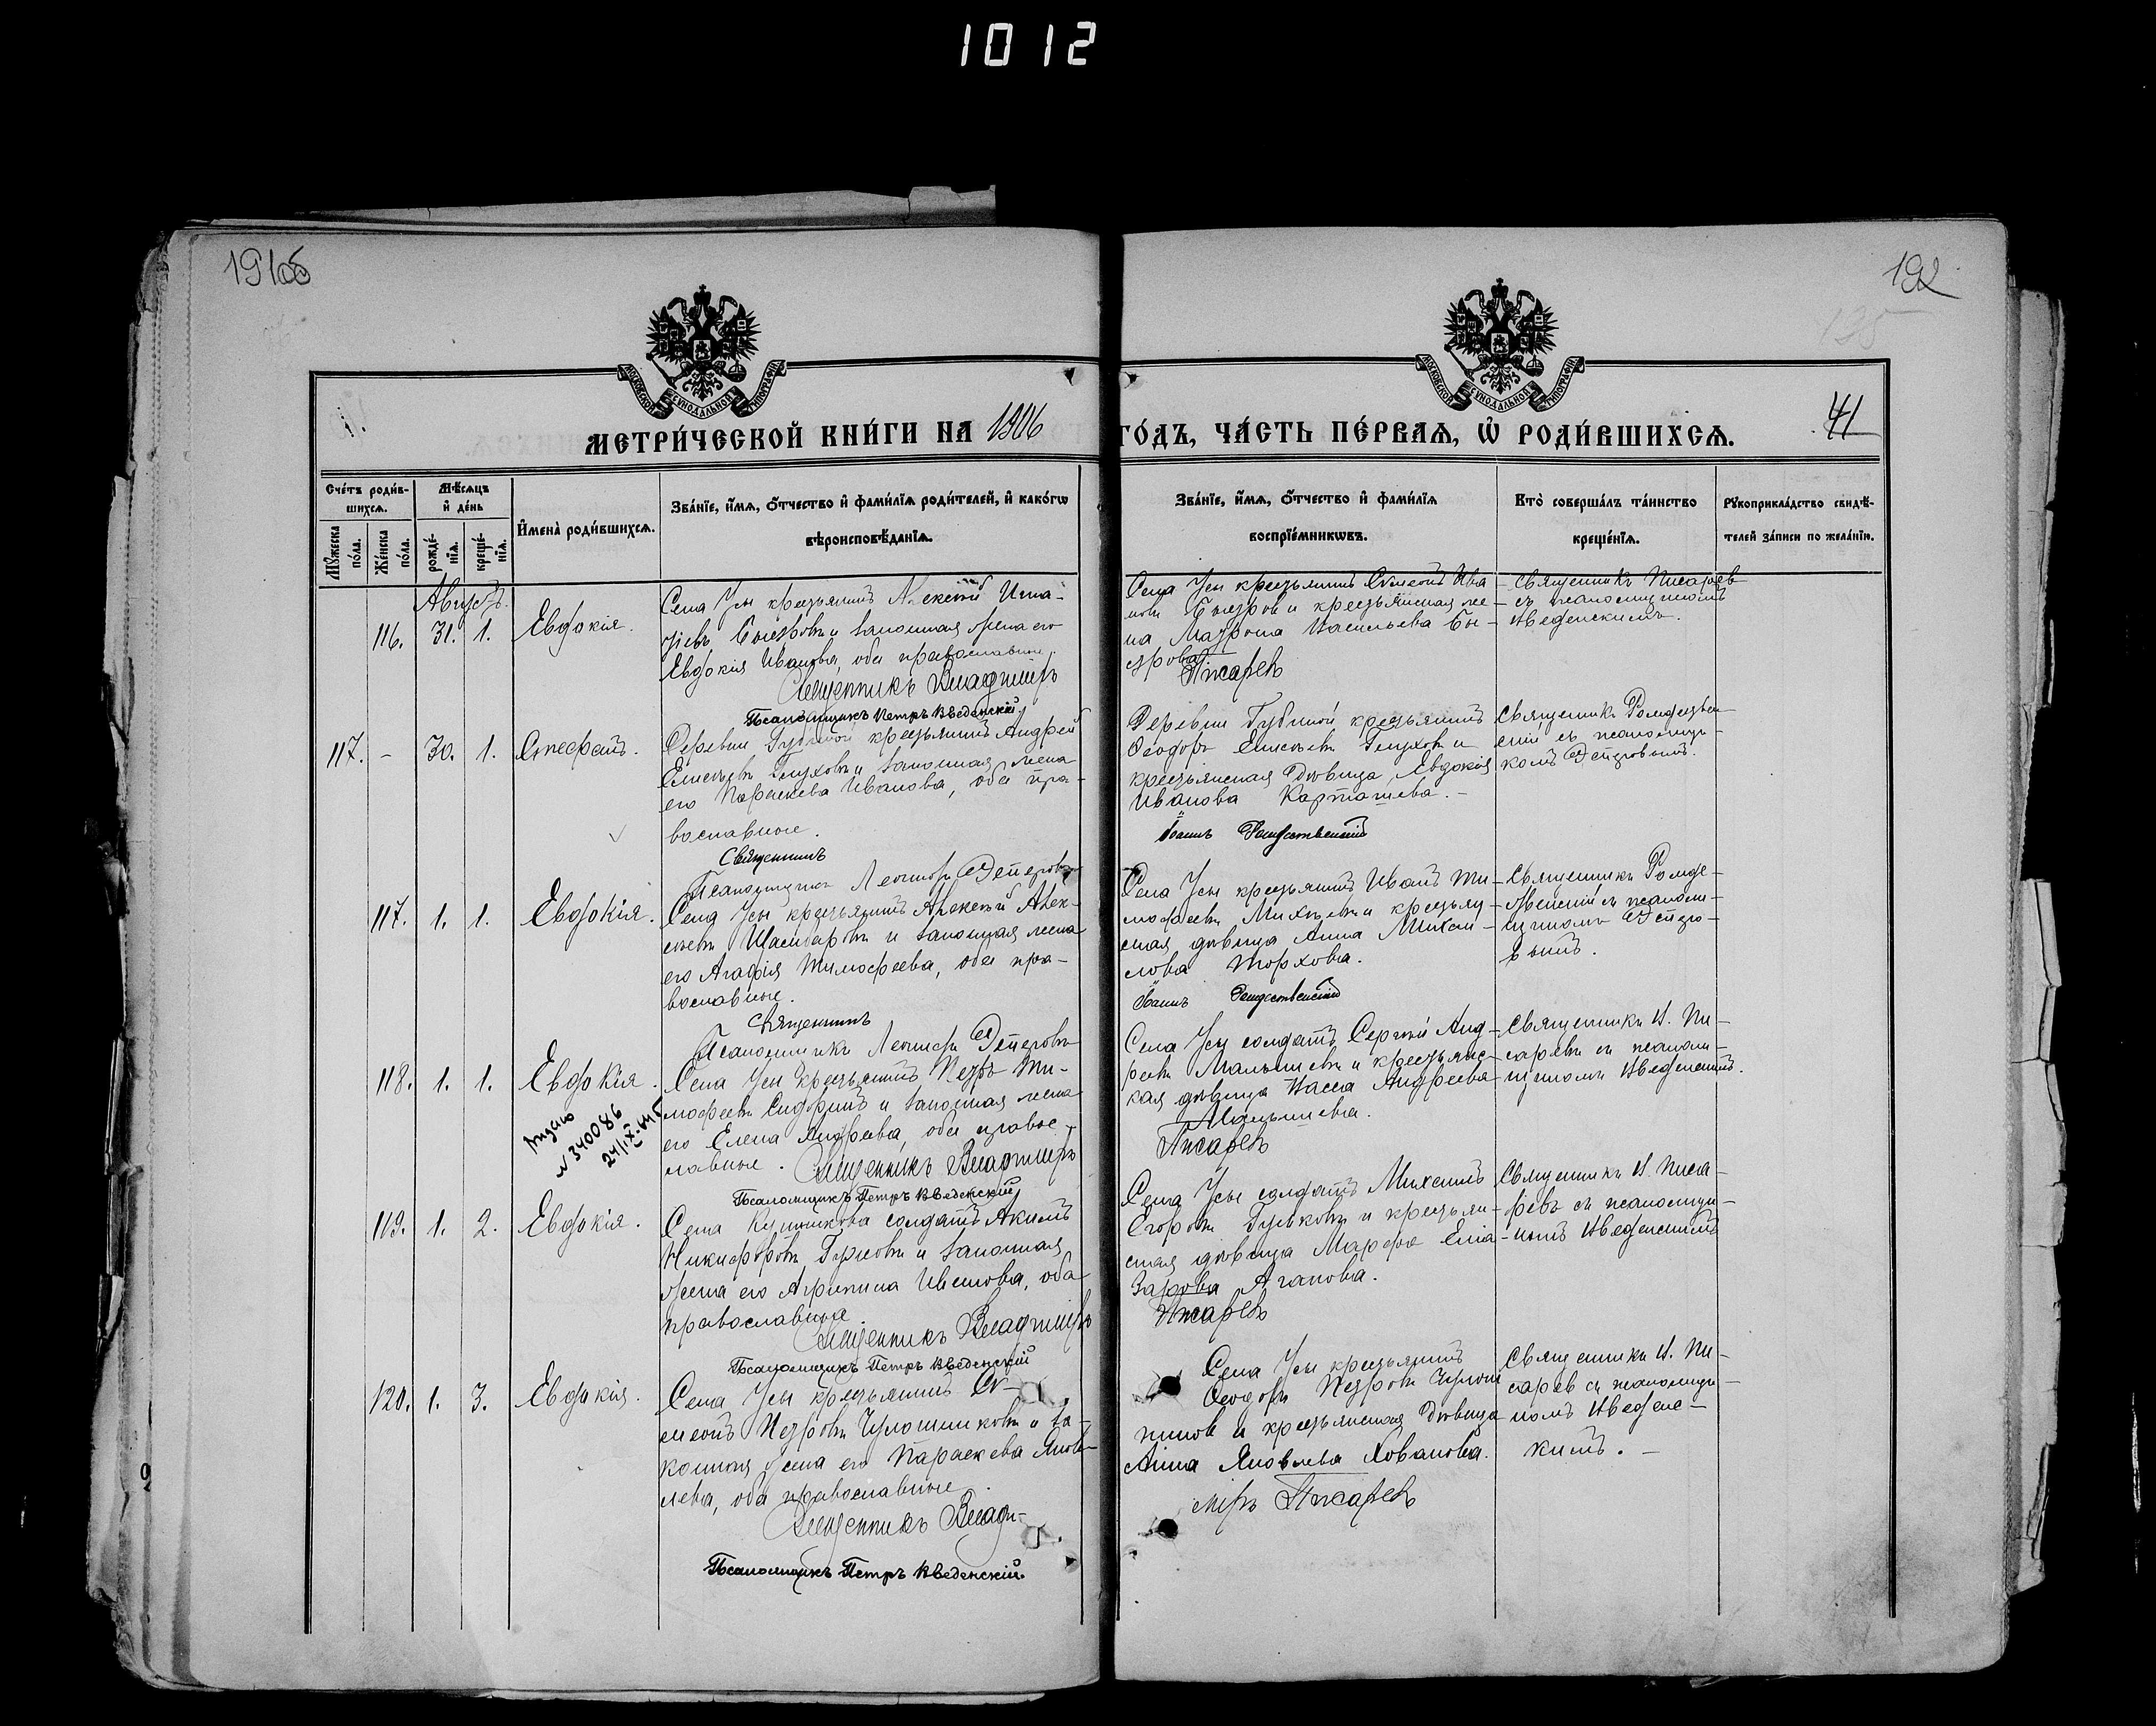 1012
1916
192
135
МОСКОВСКОЙ СѴНОДАЛЬНОЙ ТИПОГРАФІИ
МОСКОВСКОЙ СѴНОДАЛЬНОЙ ТИПОГРАФІИ
МЕТРИ́ЧЕСКОЙ КНИ́ГИ НА 1916 ГО́ДЪ, ЧА́СТЬ ПЕ́РВАѦ, Ѡ҆ РОДИ́ВШИХСѦ.
41
Сче́тъ роди́в-
шихсѧ.
Мꙋ́жеска по́ла.
Же́нска по́ла.
Мѣ́сѧцъ
и҆ де́нь
рожде́-нїѧ.
креще́-нїѧ.
И҆мена̀ роди́вшихсѧ.
Зва́нїе, и҆́мѧ, о҆́тчество и҆ фами́лїѧ роди́телей, и҆ како́гѡ
вѣроисповѣ́данїѧ.
Зва́нїе, и҆́мѧ, о҆́тчество и҆ фами́лїѧ
воспрїе́мникѡвъ.
Кто̀ соверша́лъ та́инство
креще́нїѧ.
Рꙋкоприкла́дство свидѣ́-
телей за́писи по жела́нїю.
Августъ.
116. 31. 1. Евдокія.
Села Усы крестьянинъ Алексѣй
и законная жена его
Евдокія Иванова, оба православные.
Священникъ Владиміръ
Псаломщикъ Петръ Введенскій.
Села Усы крестьянинъ Сѵмеонъ Ива-
новъ и крестьянская же-
на Матрона Васильева Бы-
строва
Писаревъ
Священникъ Писаревъ
съ псаломщикомъ
Введенскимъ.
117. – 30. 1. Стефанъ.
Деревни Губиной крестьянинъ Андрей
Елисѣевъ Глуховъ и законная жена
его Параскева Иванова, оба пра-
вославные.
Священникъ
Псаломщикъ
Деревни Губиной крестьянинъ
Ѳеодоръ Елисѣевъ Глуховъ и
крестьянская дѣвица Евдокія
Иванова Карташева.
Іоаннъ Рождественскій
Священникъ Рождествен-
скій съ псаломщи-
комъ
117. 1. 1. Евдокія.
Села Усы крестьянинъ Алексѣй Алек-
сѣевъ и законная жена
его Агафія Тимофеева, оба пра-
вославные.
Священникъ
Псаломщикъ
Села Усы крестьянинъ Иванъ Ти-
мофеевъ Михѣевъ и крестьян-
ская дѣвица Анна Михаи-
лова Торхова.
Іоаннъ Рождественскій
Священникъ Рожде-
ственскій съ псалом-
щикомъ
118. 1. 1. Евдокія.
Выдано
№ 340086
Села Усы крестьянинъ Петръ Ти-
мофеевъ Сидоринъ и законная жена
его Елена Андреева, оба правос-
лавные. Священникъ Владиміръ
Псаломщикъ Петръ Введенскій
Села Усы солдатъ Сергѣй Анд-
реевъ Малышевъ и крестьянс-
кая дѣвица Васса Андреева
Малышева.
Писаревъ
Священникъ В. Пи-
саревъ съ псалом-
щикомъ Введенскимъ.
119. 1. 2. Евдокія.
Села солдатъ Акимъ
Никифоровъ и законная
жена его Агрипина Иванова, оба
православные
Священникъ Владиміръ
Псаломщикъ Петръ Введенскій
Села Усы солдатъ Михаилъ
Егоровъ Гуськовъ и крестьян-
ская дѣвица Марфа Ела-
зарова Агапова.
Писаревъ
Священникъ В. Писа-
ревъ съ псаломщи-
комъ Введенскимъ
120. 1. 3. Евдокія.
Села Усы крестьянинъ Сѵ-
меонъ Петровъ Чулошниковъ и за-
конная жена его Параскева Яков-
лева, оба православные.
Священникъ Влади-
Псаломщикъ Петръ Введенскій.
Села Усы крестьянинъ
Ѳеодоръ Петровъ Чулош-
никовъ и крестьянская дѣвица
Анна Яковлева Хованова.
міръ Писаревъ
Священникъ В. Пи-
саревъ съ псаломщи-
комъ Введенс-
кимъ.